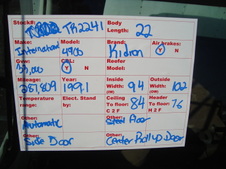 Stock#: TR2241 Body Length: 22
Make: International Model: 4900 Brand: Kidron Air brakes: Y N
Gvw: 33,000 CDL: Y N Reefer Model:
Mileage: 287,809 Year: 1991 Inside Width: 94 Outside Width: 102
Temperature range: Elect. Stand by: Ceiling To floor: 84 Header To floor: 76
Other: Automatic Other: Floor
Side Door Center Rollup Door